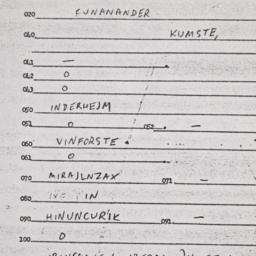 020 CUNANANDER
040 KUMSTE,
041 —
042 O
043 O
050 INDERHEJM
051 O 052 —
060 VINFORSTE
061 O
070 MIRAJLNZAX 071 —
080 IN
090 HINUNCURIK 091 —
100 O